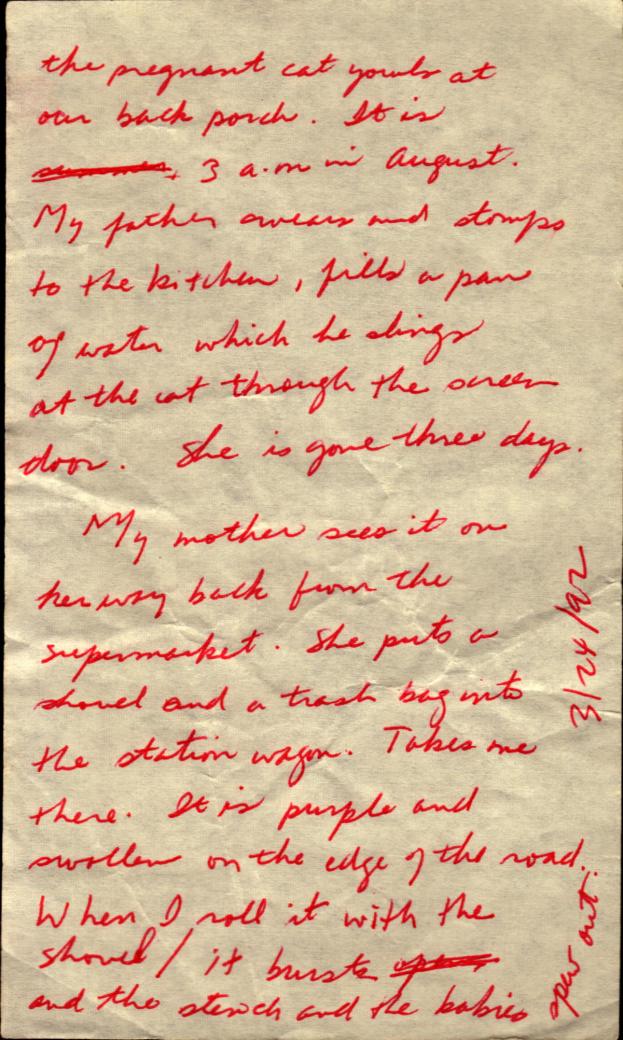 the pregnant cat yowls at
our back porch. It is
summer, 3 a.m in August.
My father swears and stomps
to the kitchen, fills a pan
of water which he slings
at the cat through the screen
door. She is gone three days.
My mother sees it on
her way back from the
supermarket. She puts a
shovel and a trash bag into
the station wagon. Takes me
there. It is purple and
swollen on the edge of the road.
When I roll it with the
shovel / it bursts open
and the stench and the babies
spew out.
3/24/92